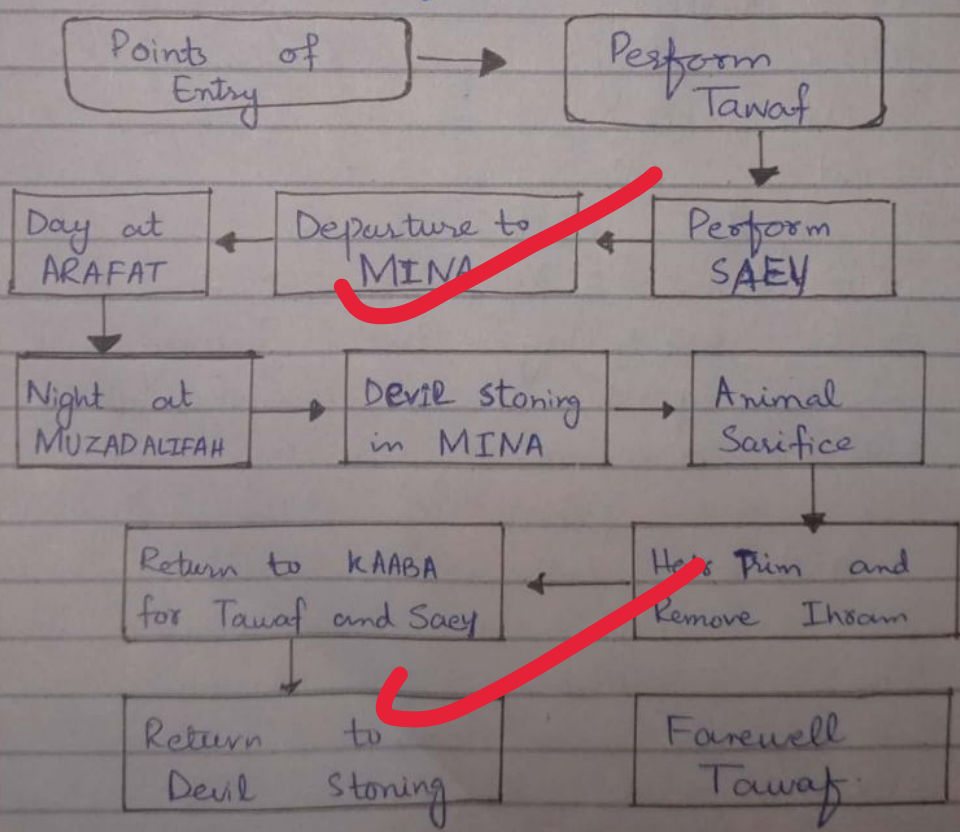 Points of
Entry
Perform
Tawaf
Perform
SAEY
Departure to
MINA
Day at
ARAFAT
Night at
MUZADALIFAH
Devil stoning
in MINA
Animal
Sarifice
Trim and
Remove Ihram
Return to KAABA
for Tawaf and Saey
Return to
Devil stoning
Farewell
Tawaf.